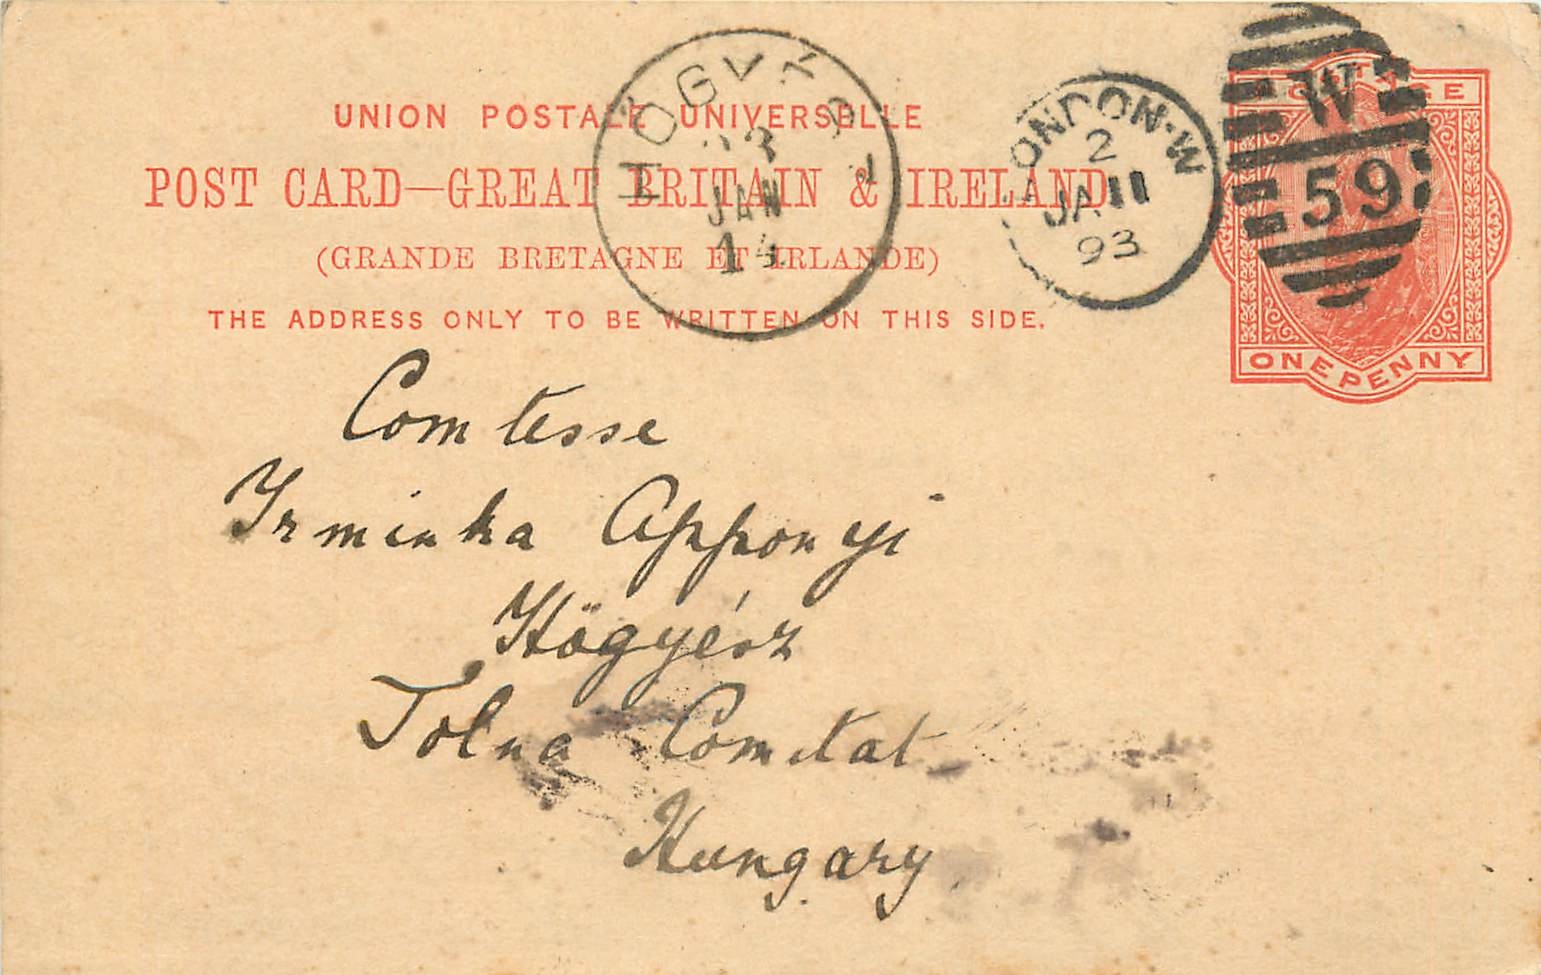 UNION POSTALE UNIVERSELLE
POST CARD—GREAT BRITAIN & IRELAND
(GRANDE BRETAGNE ET IRLANDE)
THE ADDRESS ONLY TO BE WRITTEN ON THIS SIDE.
93
JAN
14
LONDON·W
2
JA 11
93
W
59
ONE PENNY
Comtesse
Irminka Apponyi
Högyész
Tolna Comitat
Hungary